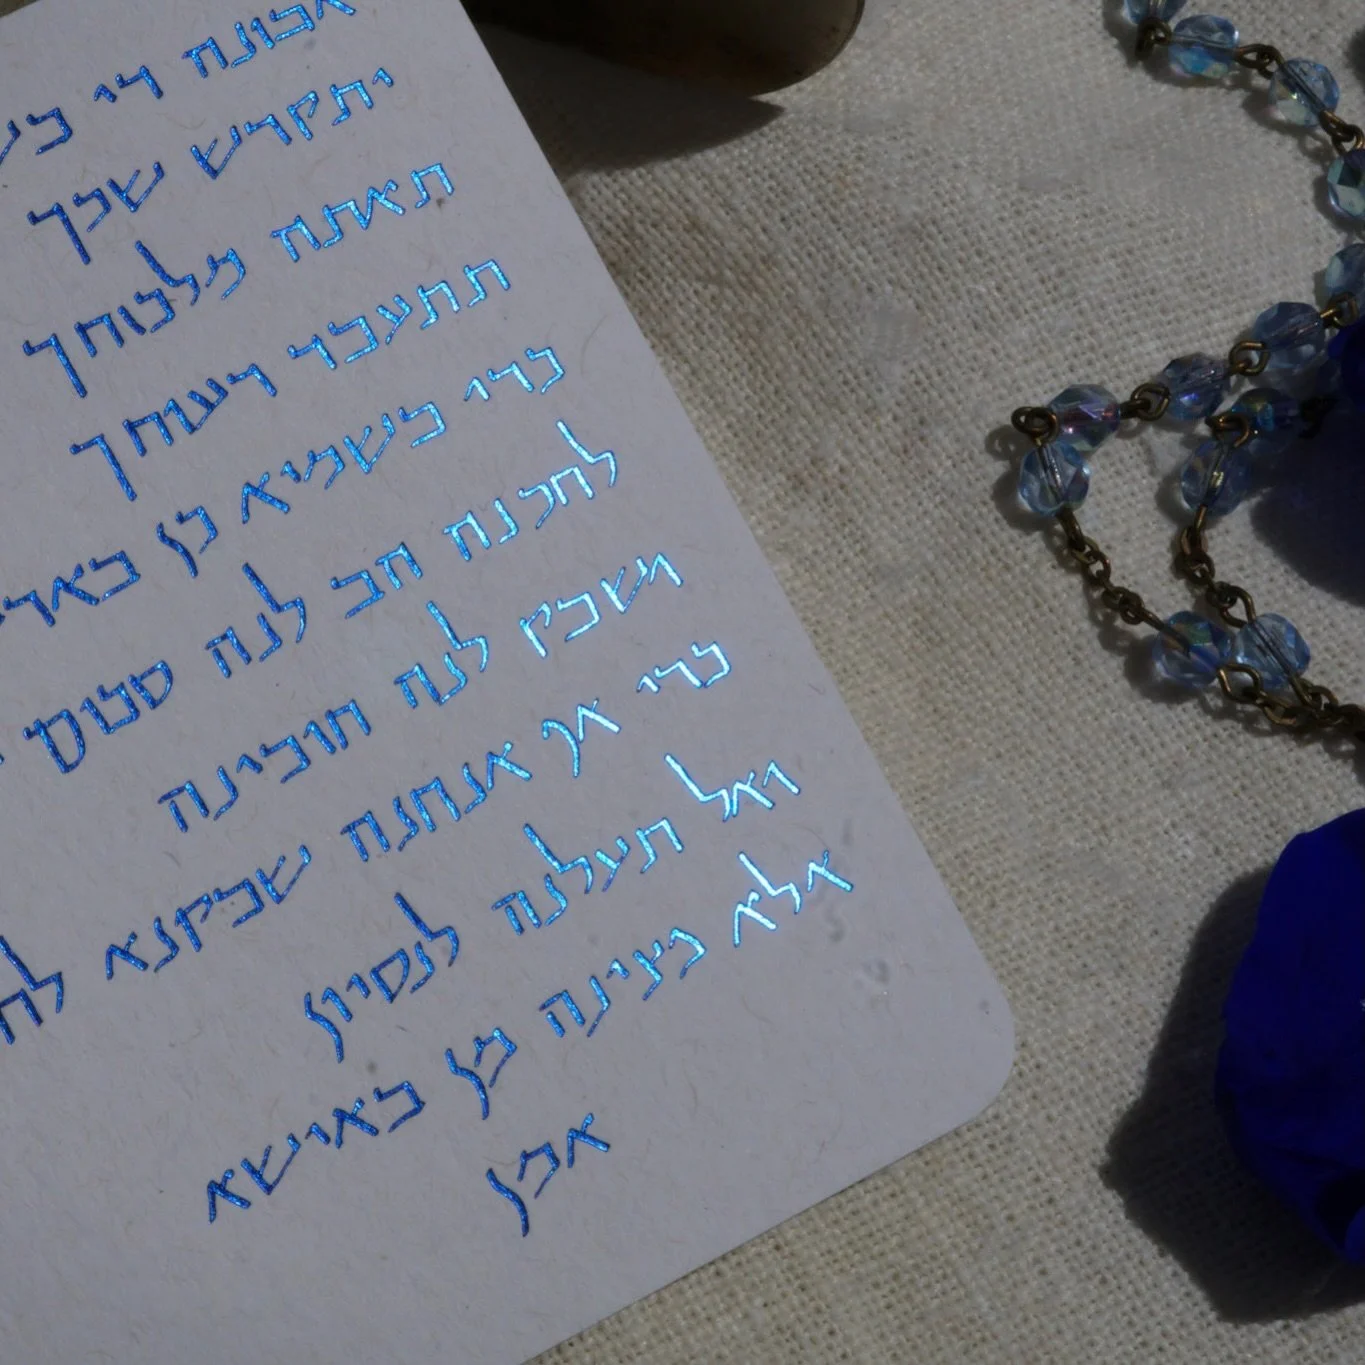 אבונה די
יתקדש שמך
תאתה מלכותך
תתעבד רעותך
כדי בשמיא כן
לחמנה הב לנה
ושבק לנה חובינה
כדי אף אנחנה שבקנא
ואל תעלנה לנסיון
אלא פצינה מן באישא
אמן